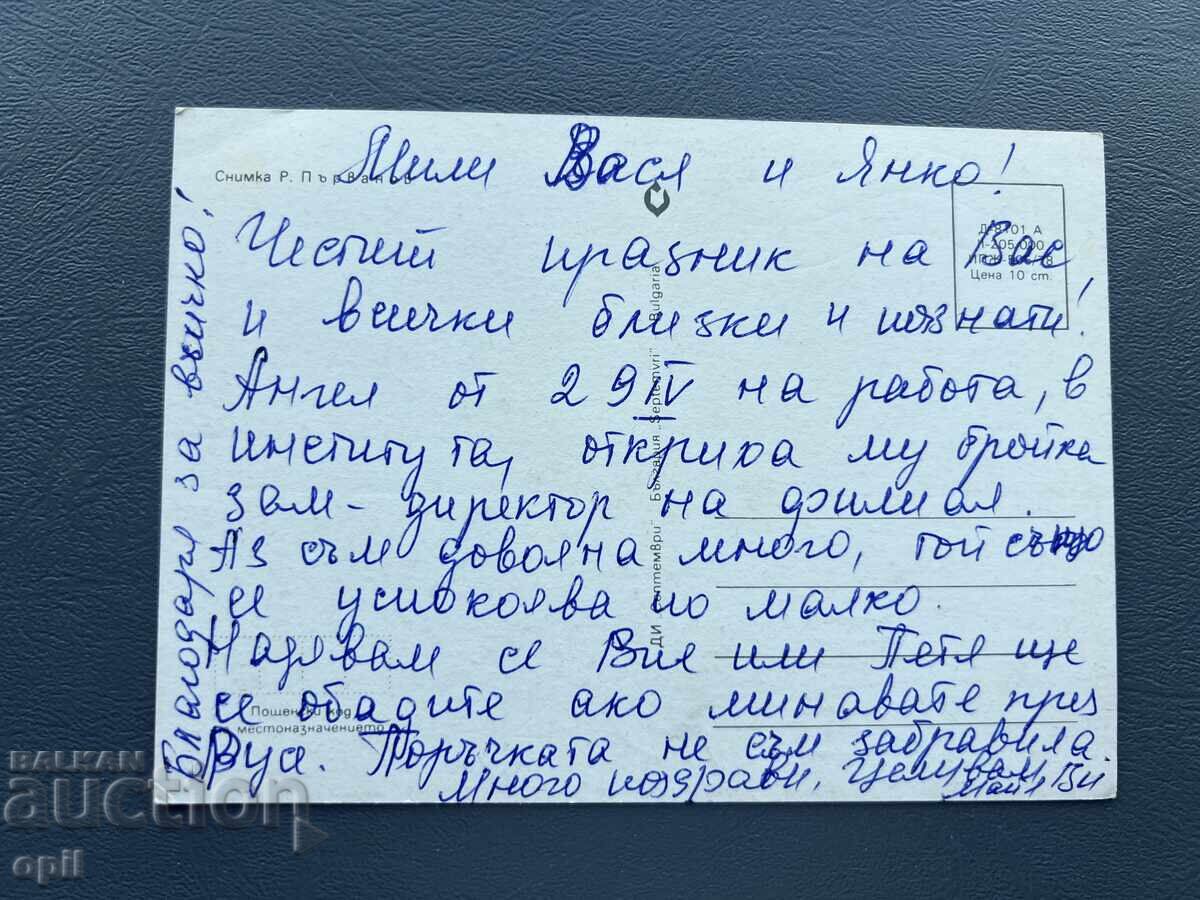 Мили Вася и Янко!
Снимка Р. Първанов
Честит празник на Вас
и всички близки и познати!
Ангел от 29 IV на работа, в
института, откриха му бройка
зам-директор на филиал.
Аз съм доволна много, той също
се успокоява по малко.
Надявам се Вие или Петя ще
се обадите ако минавате през
Русе. Поръчката не съм забравила.
Много поздрави, Целувам Ви
Благодаря за всичко!
Д-8101 А
Цена 10 ст.
ДИ „Септември" България „Septemvri" Bulgaria
Пощенски код
местоназначението
BALKAN
auction
opil